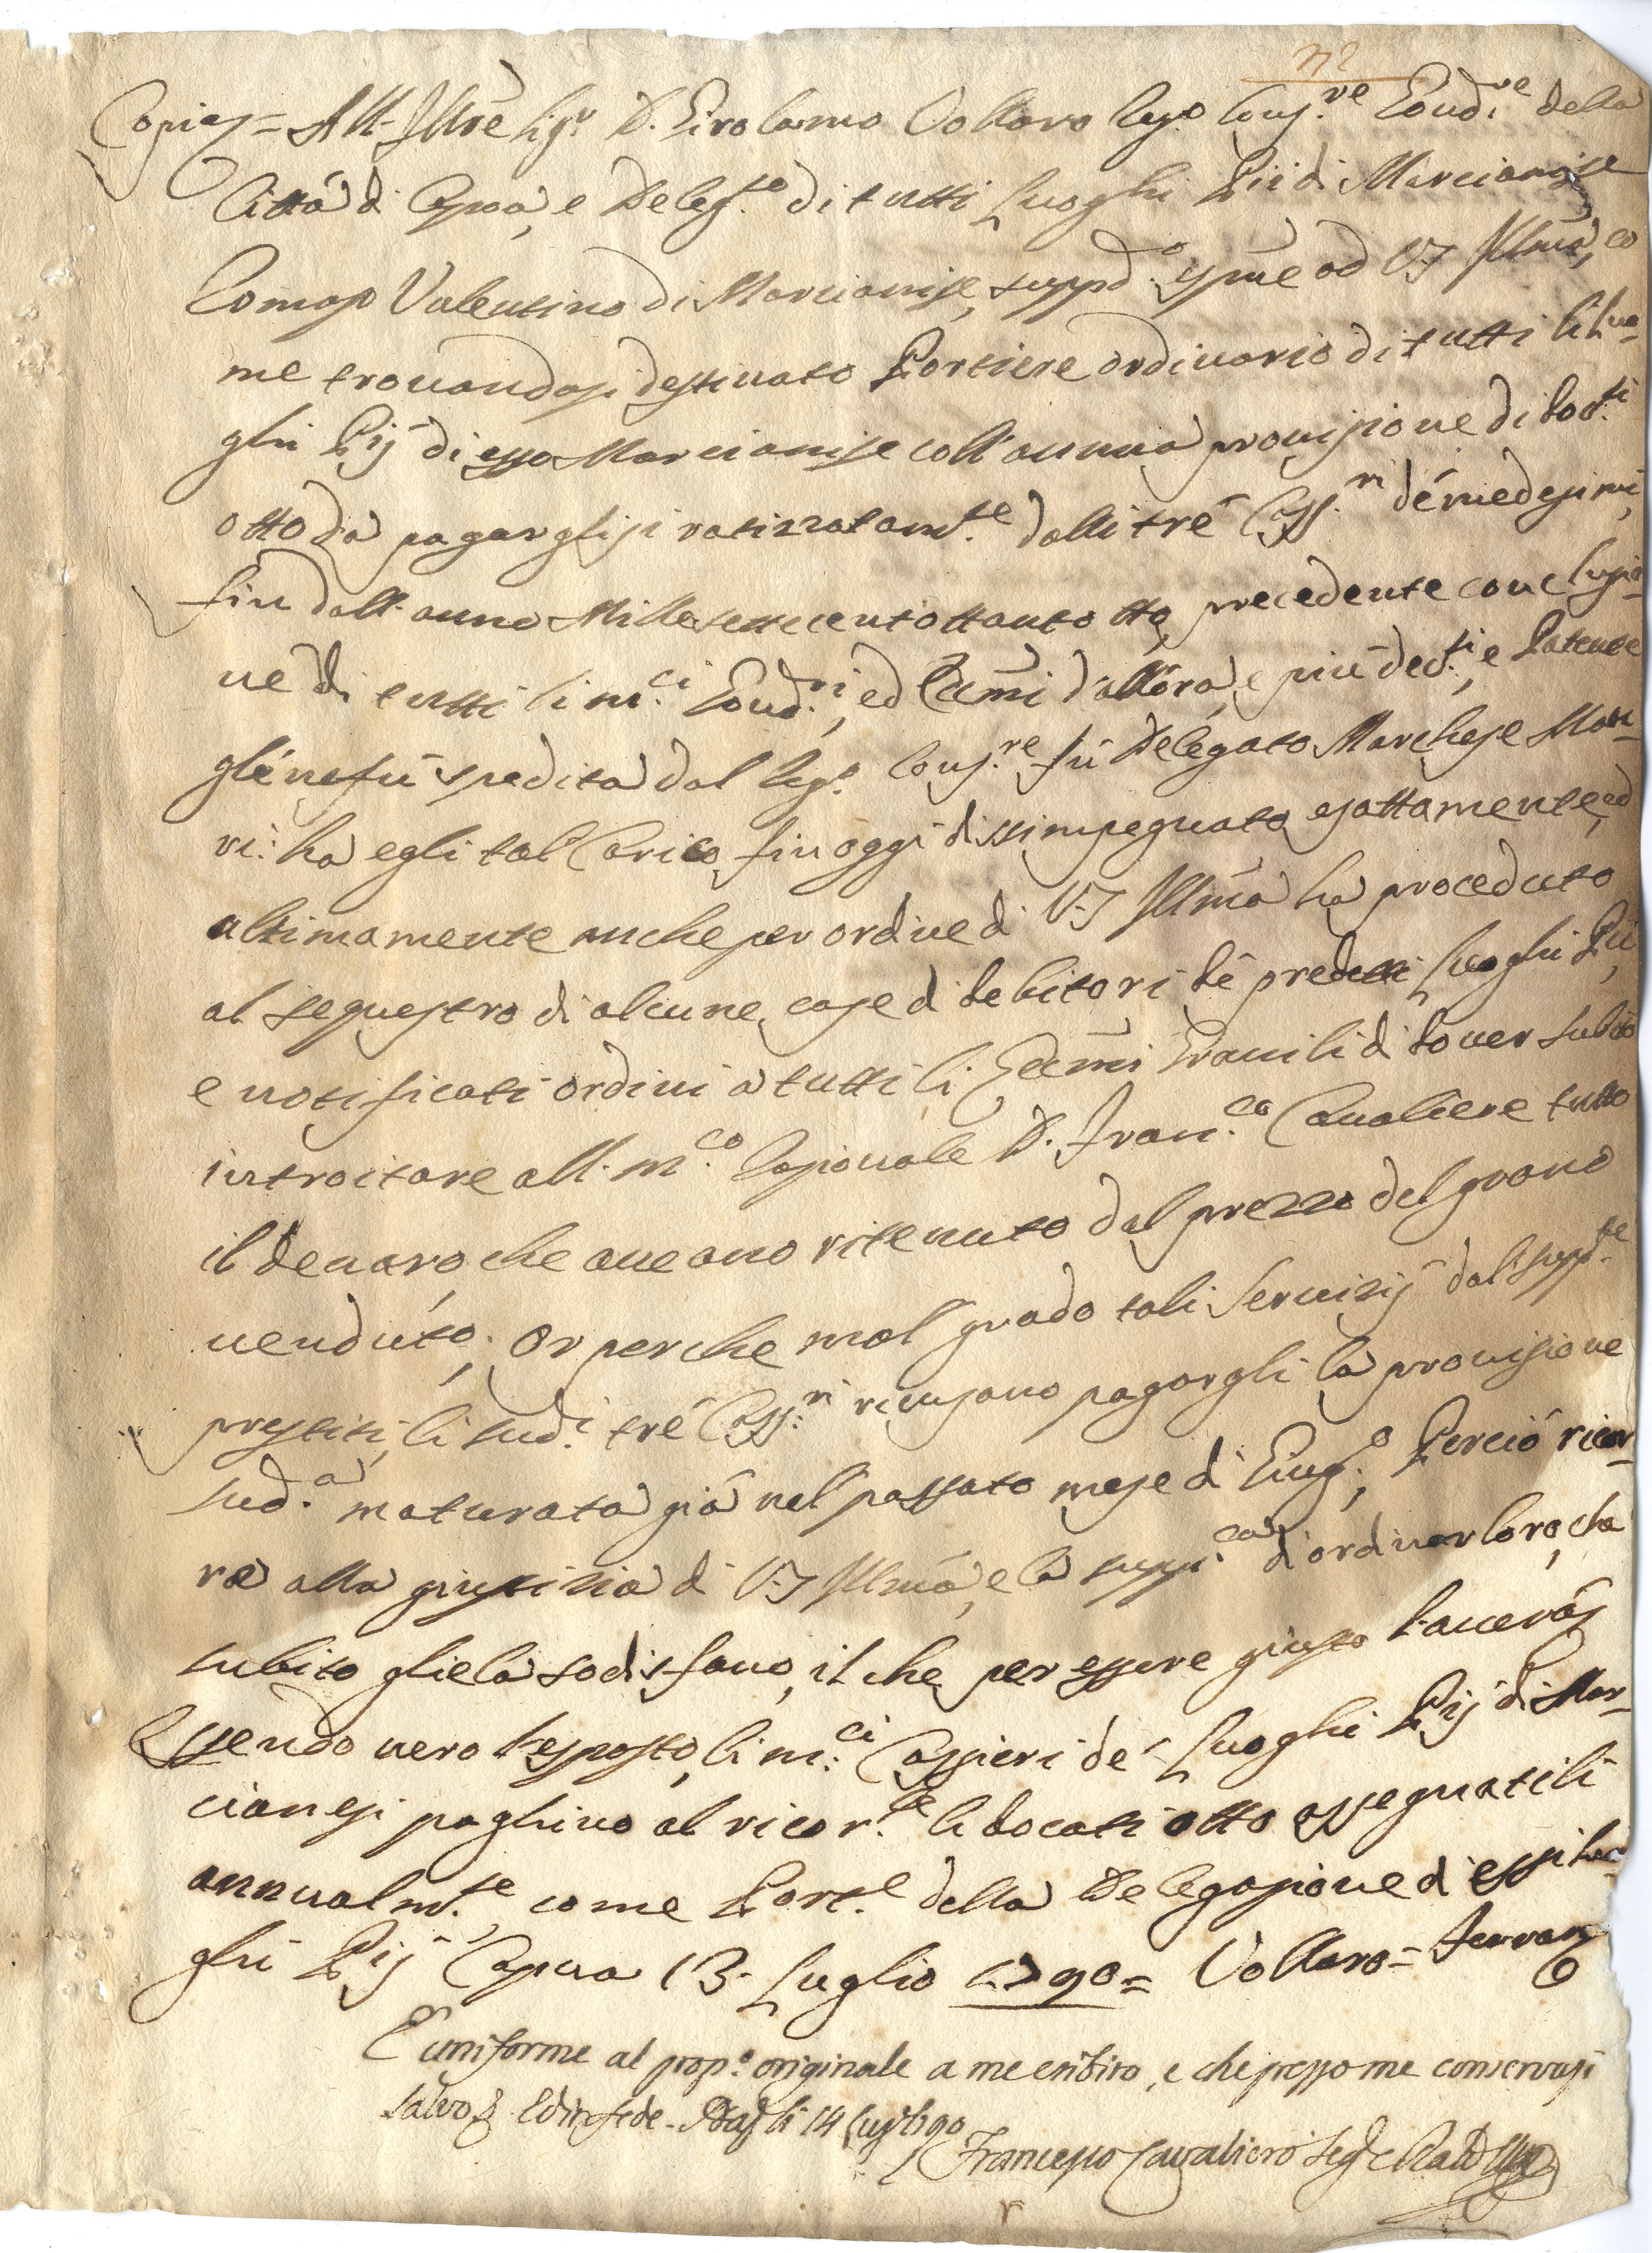 n.º 2
Copia = All' Ill.re Sig.r D. Girolamo Vollaro Reg.o Cons.re Goud.re della
Città di Capoa, e Deleg.to di tutti Luoghi Pii di Marcianise
Tomaso Valentino di Marcianise, suppd.o espone ad V.S. Ill.ma, co
me trovandosi destinato Portiere ordinario di tutti li Luo-
ghi Pij di essa Marcianise coll'annua provisione di doc.ti
otto da pagarglisi ratizzatam.te dalli trè Cass.ri dé medesimi,
fin dall'anno Mille settecentottantotto, precedente conclusio-
ne di tutti li m.ci Gov.ri, ed Eco.mi d'allora, e più dec.ti, e Patente
gliè ne fù spedita dal Reg.o Cons.re fù Delegato Marchese Mau-
ri: ha egli tal Carico fin oggi dissimpegnato esattamente, ed
ultimamente anche per ordine di V.S. Ill.ma ha proceduto
al sequestro di alcune case di debitori dé predetti Luoghi Pii,
e notificati ordini a tutti li Eco.mi Granili di dover subito
introitare all. m.co Razionale D. Fran.co Cavaliere tutto
il denaro, che aveano ritenuto dal prezzo del grano
venduto. Or perche mal grado tali servizij dal supp.te
prestiti, li sud.i trè Cass.ri ricusano pagargli la provisione
sud.a maturata già nel passato mese di Giug.o; Perciò ricor-
re alla giustizia di V.S. Ill.ma, e la supp.ca d'ordinar loro, che
subito gliela sodisfano, il che per essere giusto l'averà
Essendo vero l'esposto, li m.ci Cassieri de' Luoghi Pij di Mar-
cianesi paghino al ricor.te li docati otto assegnatili
annualm.te come Port.e della Delegazione di essi Luo-
ghi Pij Capua 13. Luglio 1790 = Vollaro = Ferran
E' uniforme al prop.o originale a me esibito, e che presso me conservasi
salvo & Ed in fede - li 14 Lug.o 1790
Francesco Cavaliero Seg.